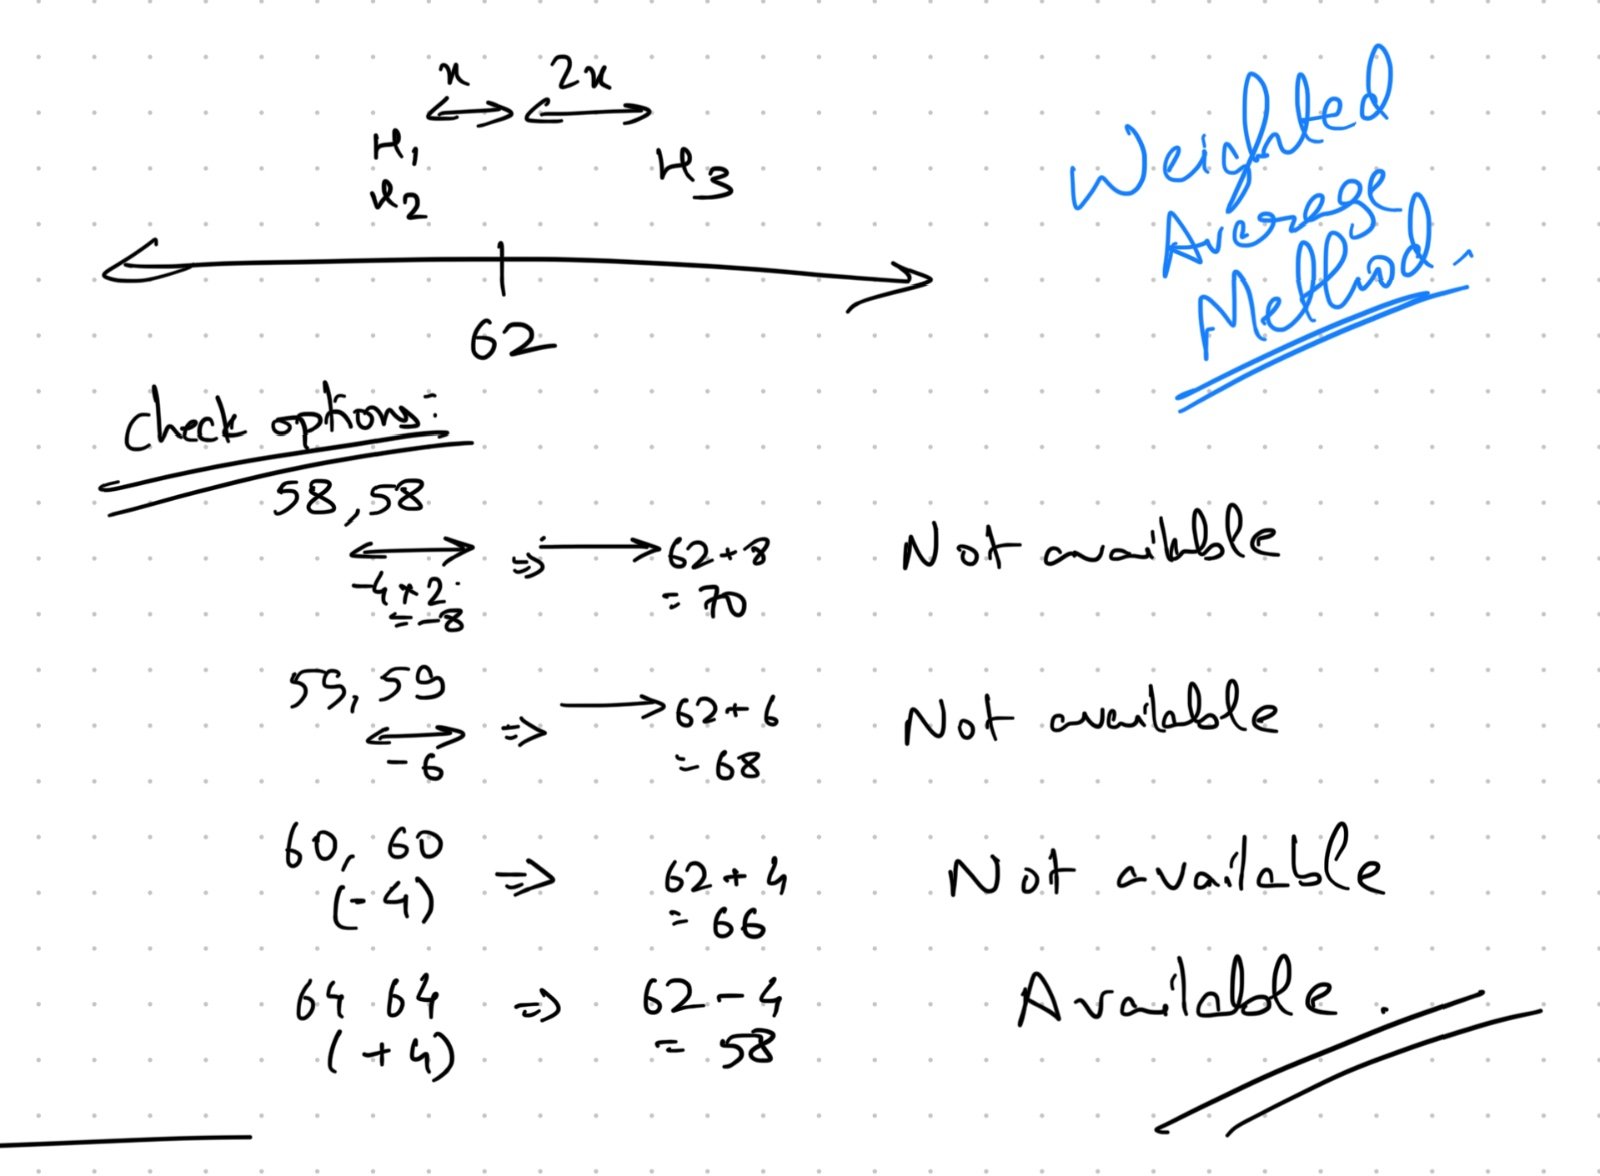 x 2x
H1
H2
H3
62
Weighted
Average
Method.
Check options:
58, 58
-4 × 2
= -8
=> 62 + 8
= 70
Not available
59, 59
-6
=> 62 + 6
= 68
Not available
60, 60
(-4)
=> 62 + 4
= 66
Not available
64 64
(+4)
=> 62 - 4
= 58
Available.